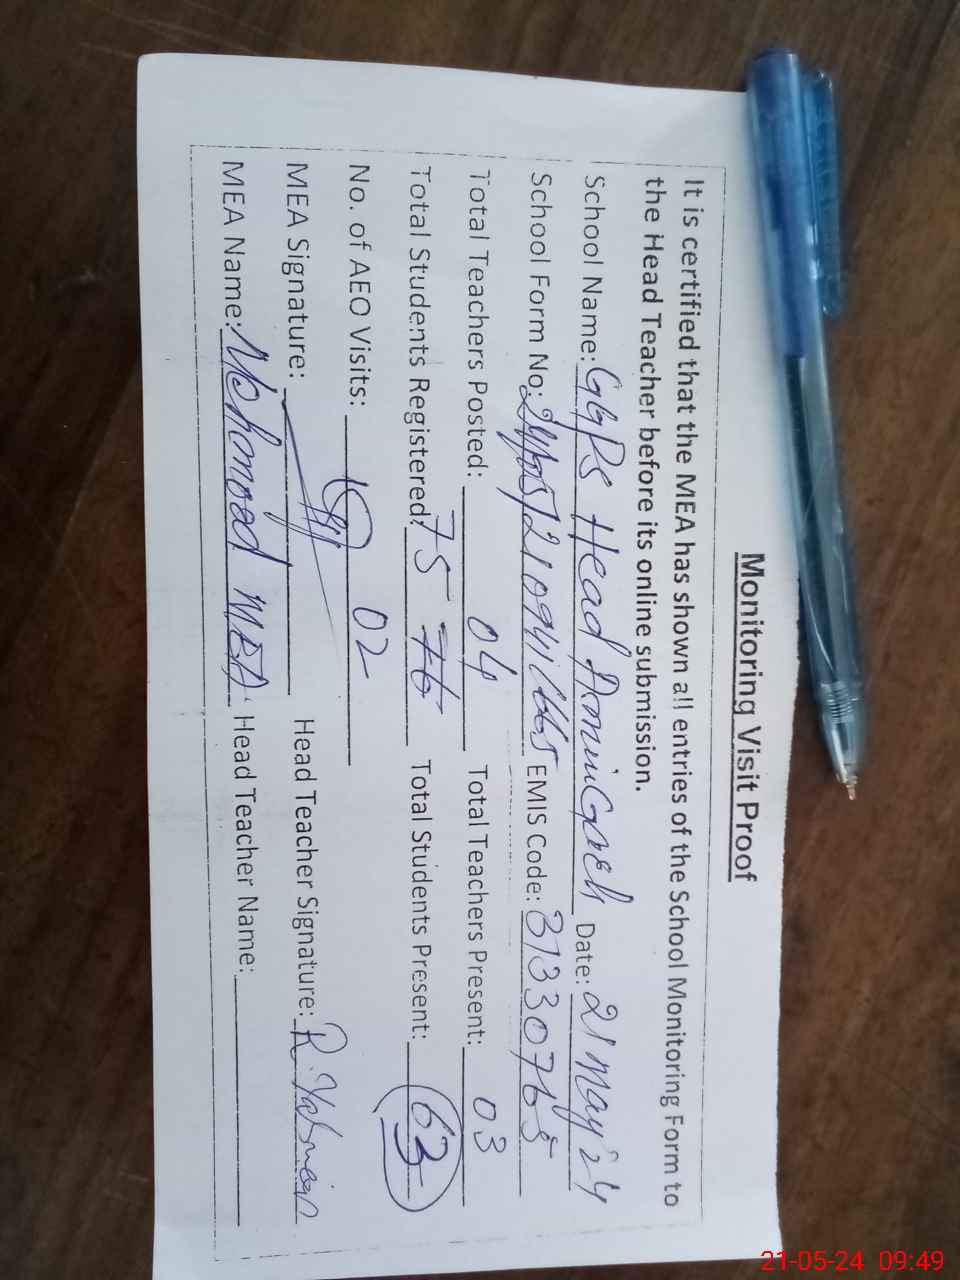 Monitoring Visit Proof
It is certified that the MEA has shown all entries of the School Monitoring Form to
the Head Teacher before its online submission.
School Name: GGPS Head Date: 21 May 24
School Form No: EMIS Code: 31330765
Total Teachers Posted: 04 Total Teachers Present: 03
Total Students Registered: 75 76 Total Students Present: 63
No. of AEO Visits: 02
MEA Signature: Head Teacher Signature: R. Yasmeen
MEA Name: Mehmood MEA Head Teacher Name:
21-05-24 09:49